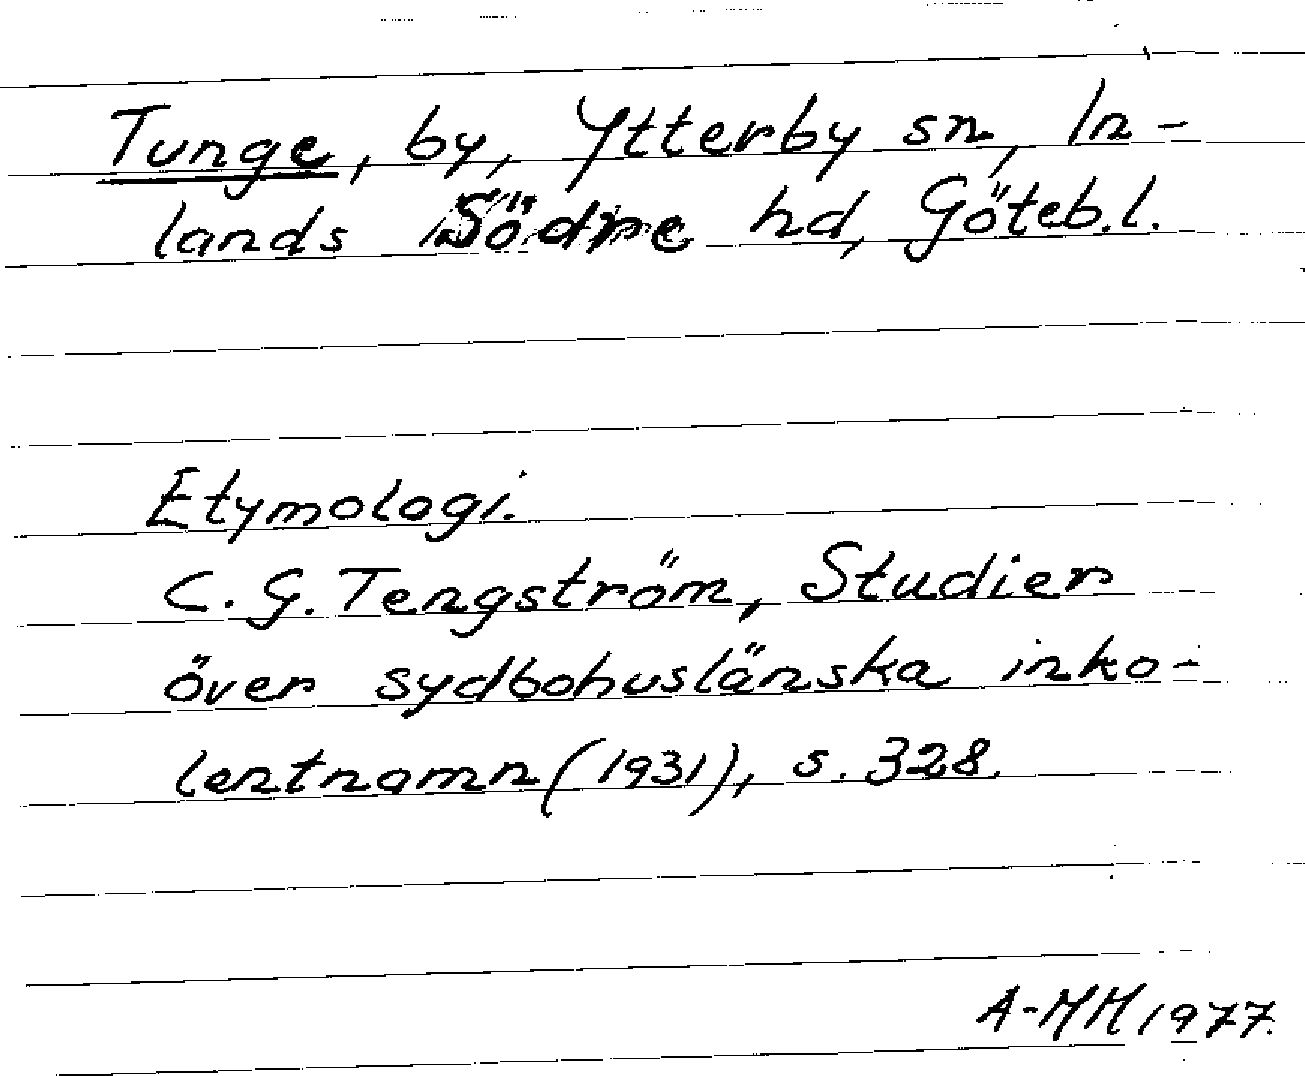 Tunge, by, Ytterby sn, In-
lands Södre hd, Göteb.l.
Etymologi.
C. G. Tengström, Studier
över sydbohuslänska inko-
lentnamn (1931), s. 328.
A-MM 1977.